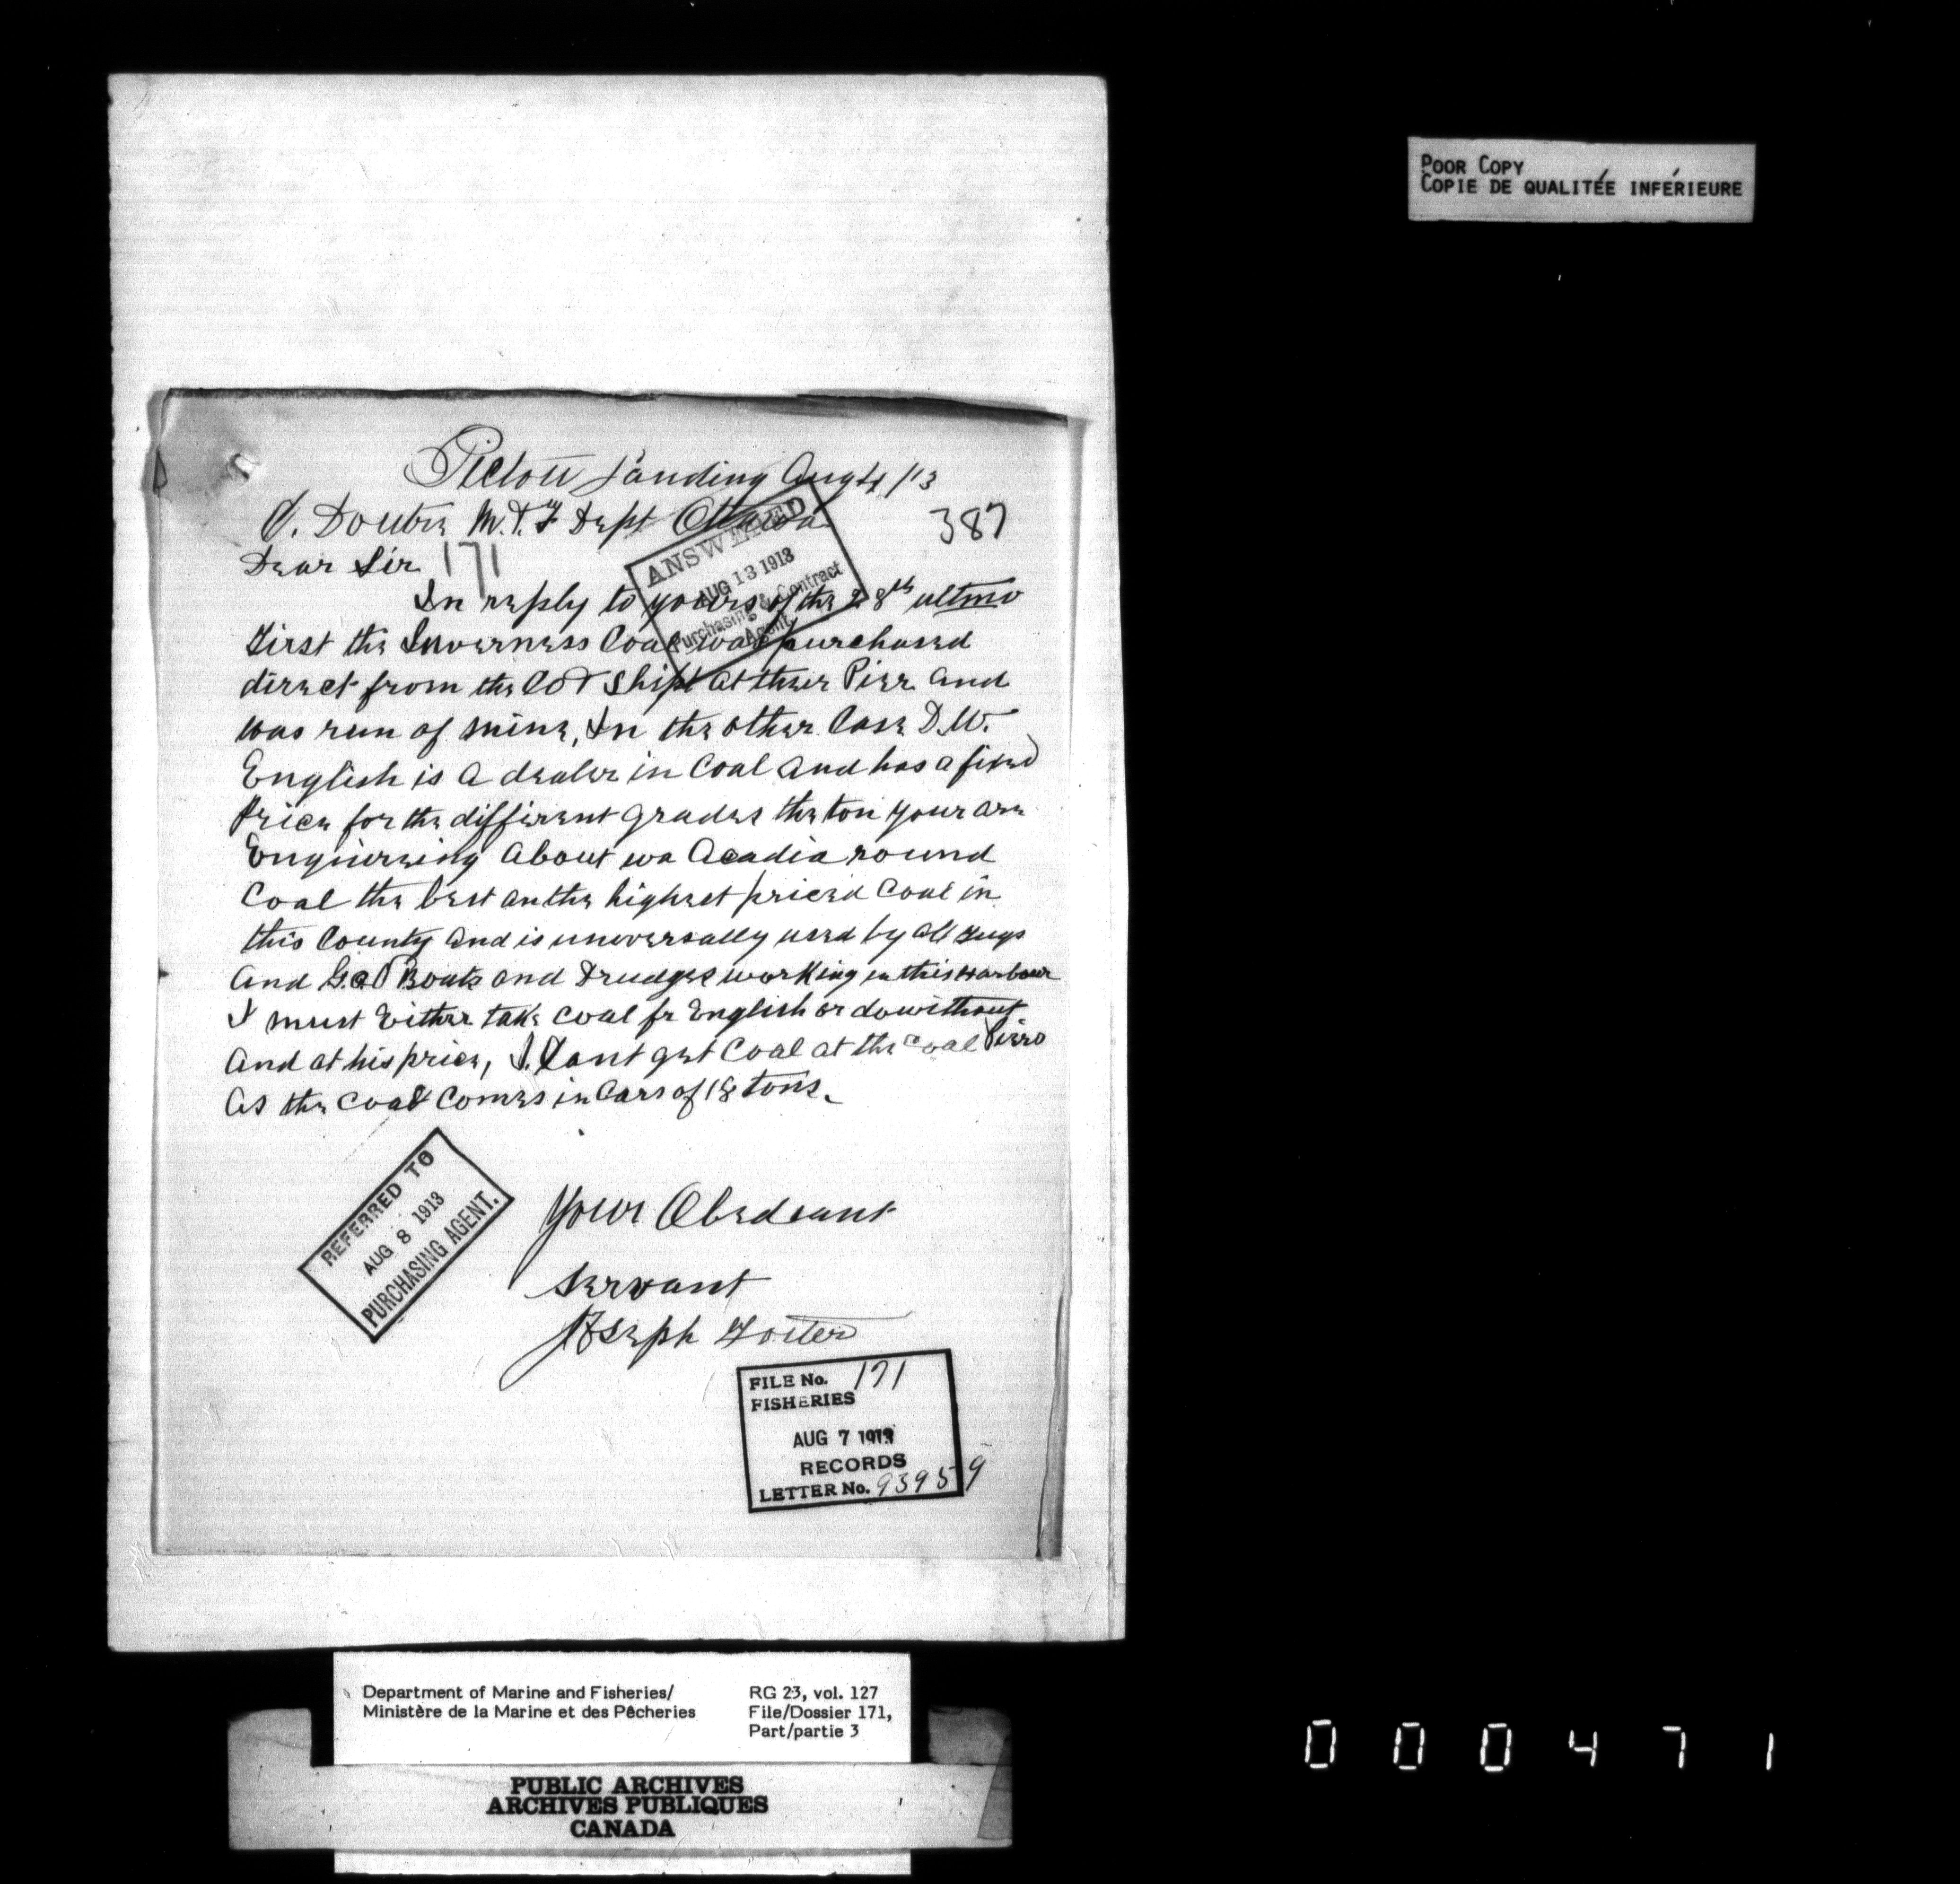 POOR COPY
COPIE DE QUALITÉE INFÉRIEURE
Pictou Landing Aug 4/13
J. Doutre M. & F Dept Ottawa
387
Dear Sir
171
ANSWERED
AUG 13 1913
Purchasing & Contract
Agent.
In reply to yours of the 28th ultmo
First the Inverness Coal was purchased
direct from the Co & Shipt at their Pier and
was run of mine, In the other Case D.W.
English is a dealer in Coal and has a fixed
Price for the different grades the ton your are
Enquireing About wa Acadia round
Coal the best an the highest priced Coal in
this County and is uneversally used by all Tugs
And Boats and Drudges working in this Harbour
I must Either take coal fr English or do without
And at his price, I Cant get Coal at the Coal Piers
As the coal Comes in Cars of 18 tons.
Your Obedeant
Servant
Joseph Foster
REFERRED TO
AUG 8 1913
PURCHASING AGENT.
FILE No. 171
FISHERIES
AUG 7 1913
RECORDS
LETTER No. 93959
Department of Marine and Fisheries/
Ministère de la Marine et des Pêcheries
RG 23, vol. 127
File/Dossier 171,
Part/partie 3
PUBLIC ARCHIVES
ARCHIVES PUBLIQUES
CANADA
000471